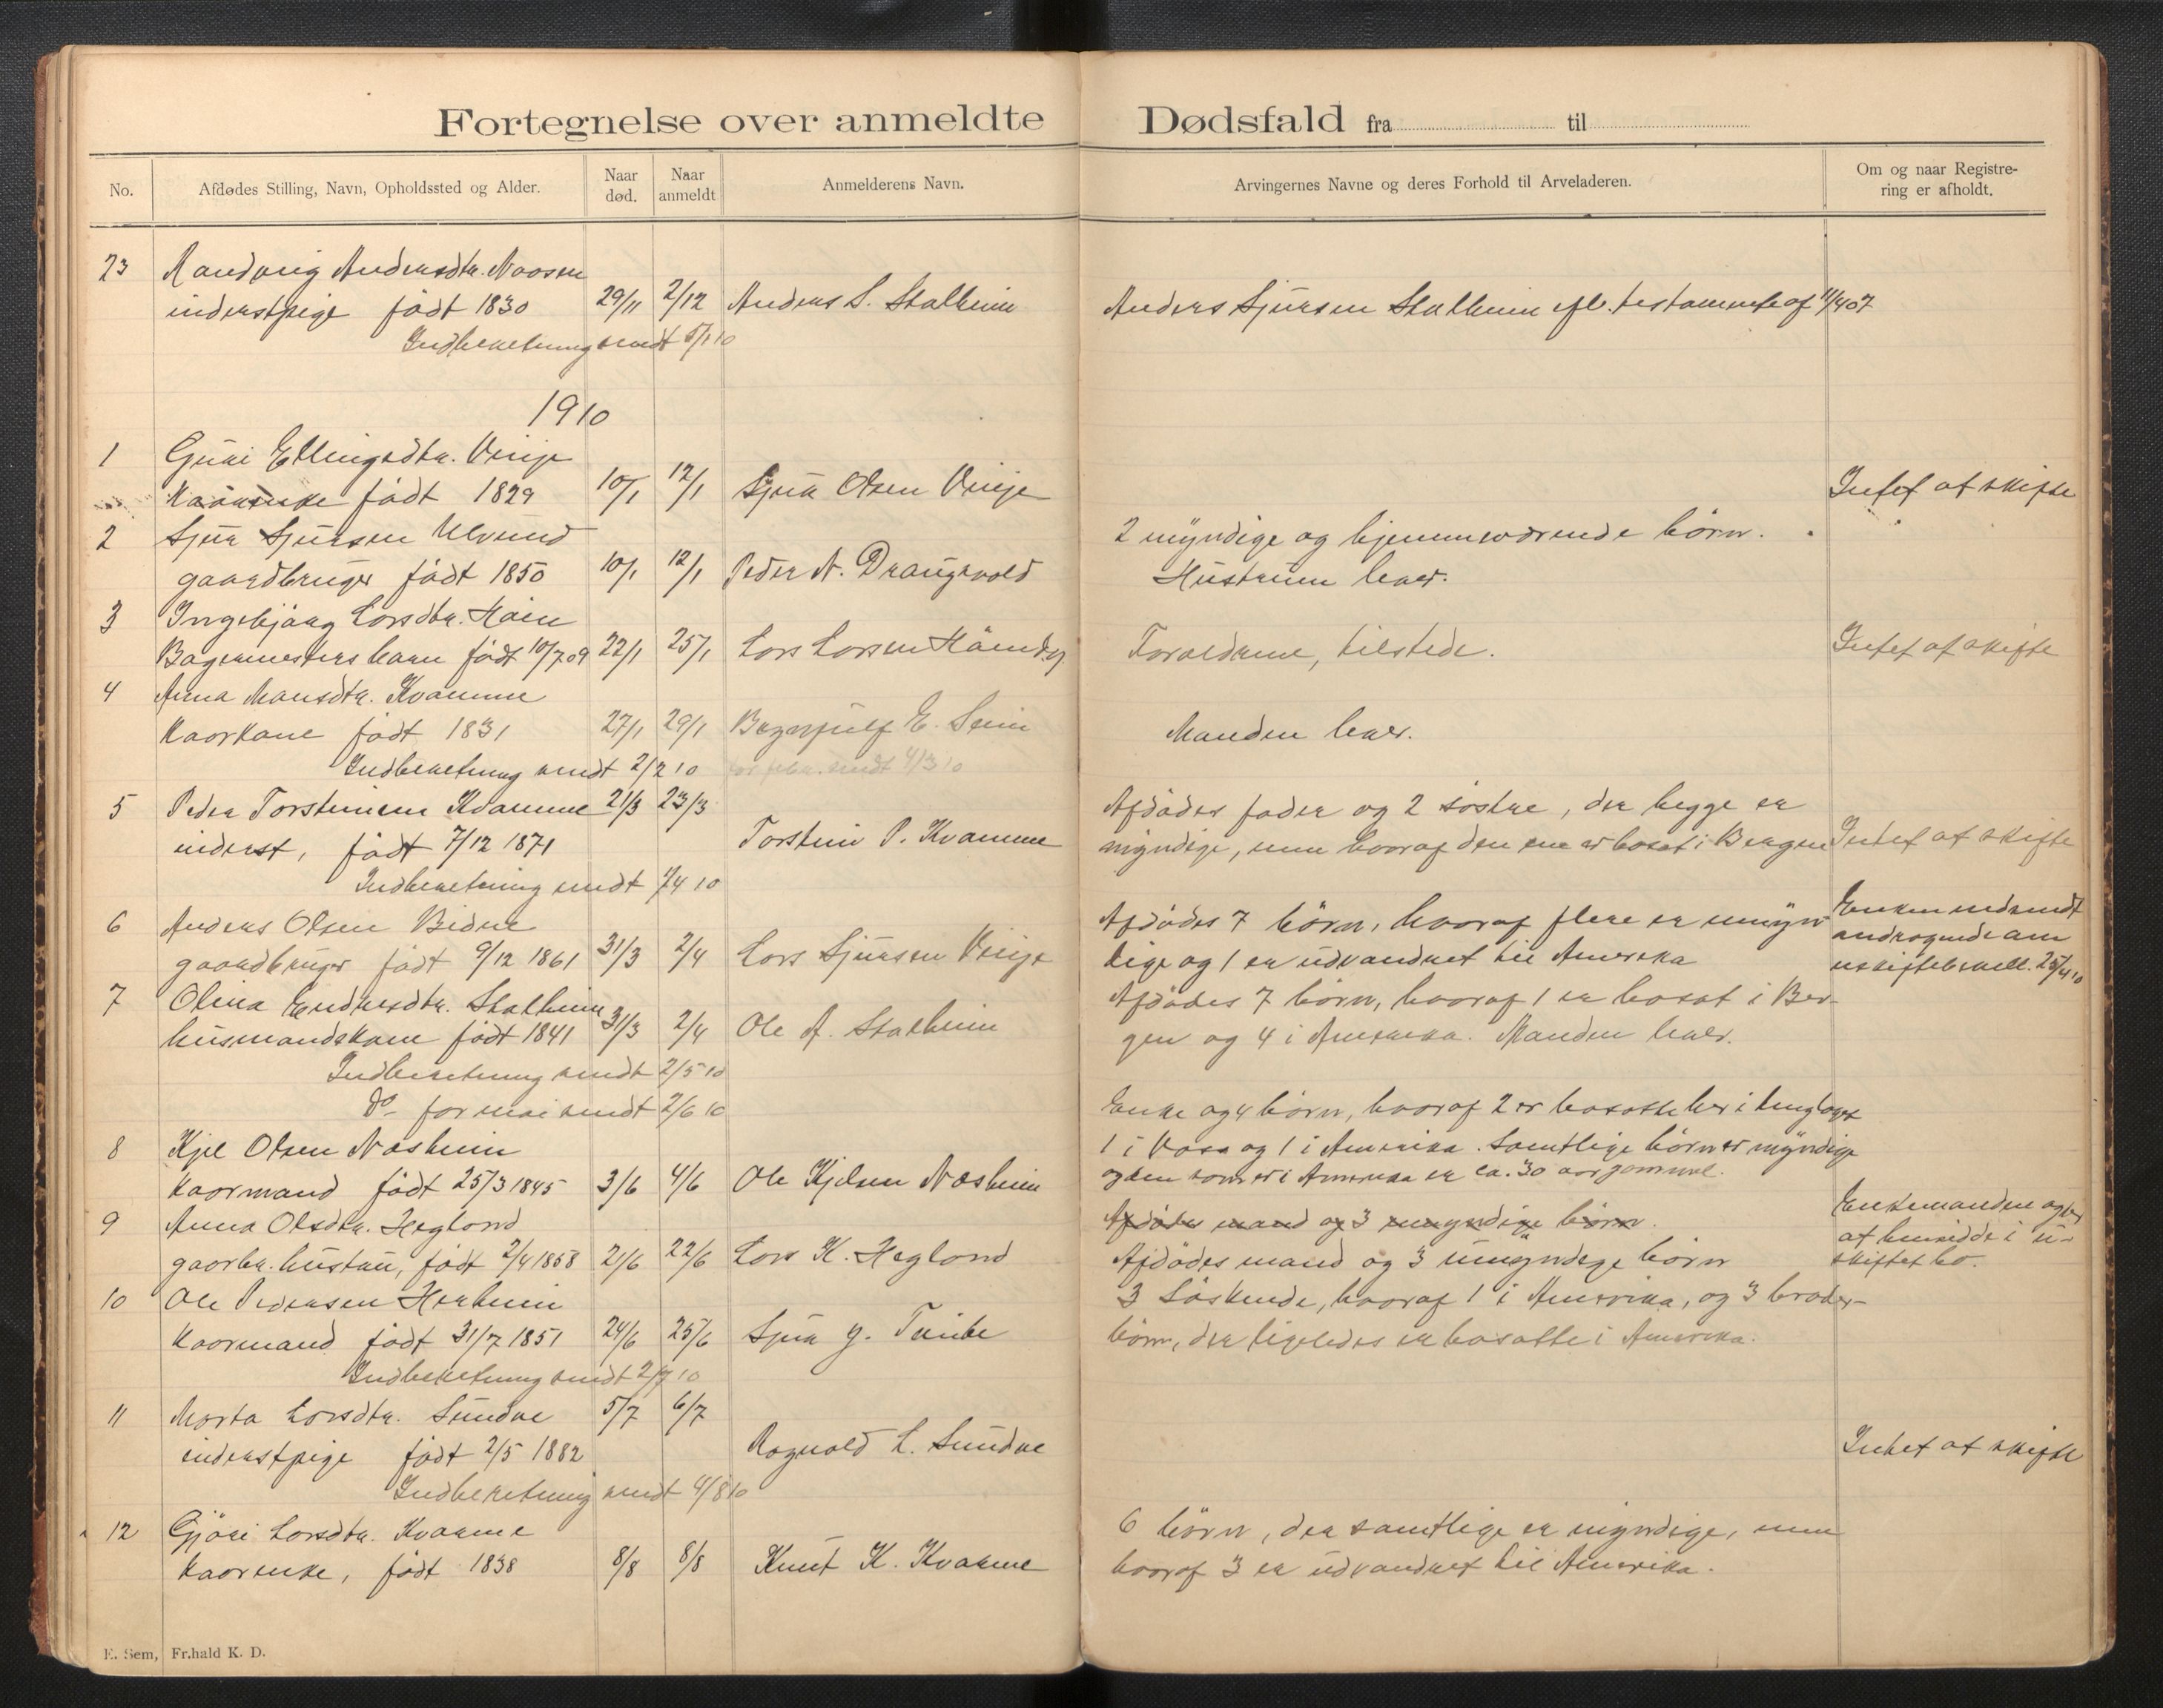 Fortegnelse over anmeldte Dødsfald fra til
No.
Afdødes Stilling, Navn, Opholdssted og Alder.
Naar død.
Naar anmeldt
Anmelderens Navn.
Arvingernes Navne og deres Forhold til Arveladeren.
Om og naar Registrering er afholdt.
23 Randveig Andersdtr. Naasen
inderstpige født 1830 29/11 2/12 Anders S. Stalheim Anders Sjursen Stalheim ifl. testamente af 11/4 07
Indberetning sendt 5/1 10
1910
1 Guri Ellingsdtr. Vinje
Kaarenke født 1829 10/1 12/1 Sjur Olsen Vinje Intet at skifte
2 Sjur Sjursen Ulvund 2 myndige og hjemmeværende børn.
gaardbruger født 1850 10/1 12/1 Peder N. Draugsvold Hustruen lever.
3 Ingebjørg Larsdtr. Høin
Bagermesters barn født 10/7 09 22/1 25/1 Lars Larsen Forældrene, tilstede. Intet at skifte
4 Anna Monsdtr. Kvamme
Kaarkone født 1831 27/1 29/1 Brynjulf E. Seim Manden lever.
Indberetning sendt 2/2 10 for febr. sendt 4/3 10
5 Peder Torsteinsen Kvamme 21/3 23/3 Afdødes fader og 2 søstre, der begge er
inderst, født 7/12 1871 Torstein P. Kvamme myndige, men hvoraf den ene er bosat i Bergen Intet at skifte
Indberetning sendt 1/4 10
6 Anders Olsen Bidne Afdødes 7 børn, hvoraf flere er umyn-
gaardbruger født 9/12 1861 31/3 2/4 Lars Sjursen Vinje dige og 1 er udvandret til Amerika
Enken indsendt
andragende om
uskiftebevill. 25/4 10
7 Olina Endresdtr. Stalheim Afdødes 7 børn, hvoraf 1 er bosat i Ber-
husmandskone født 1841 31/3 2/4 Ole A. Stalheim gen og 4 i Amerika. Manden lever.
Indberetning sendt 2/5 10
do for mai sendt 2/6 10
Enke og 4 børn, hvoraf 2 er bosatte her i tinglaget
8 Kjel Olsen Næsheim 1 i Voss og 1 i Amerika. Samtlige børn er myndige
Kaarmand født 25/3 1845 3/6 4/6 Ole Kjelsen Næsheim og den som er i Amerika er ca. 30 aar gammel.
9 Anna Olsdtr. Heglond Afdødes mand og 3 umyndige børn.
gaarbr. hustru, født 2/4 1858 21/6 22/6 Lars K. Heglond Afdødes mand og 3 umyndige børn
Enkemanden agter
at hensidde i u-
skiftet bo.
10 Ole Pedersen Herheim 3 Søskende, hvoraf 1 i Amerika, og 3 broder-
Kaarmand født 31/7 1851 24/6 25/6 Sjur G. Tvinde børn, der ligeledes er bosatte i Amerika.
Indberetning sendt 2/7 10
11 Marta Larsdtr. Sundve 5/7 6/7
inderstpige født 2/5 1882 Ragnvald L. Sundve Intet at skifte
Indberetning sendt 4/8 10
12 Gjøri Larsdtr. Kvamme 6 børn, der samtlige er myndige, men
kaarenke, født 1838 8/8 8/8 Knut K. Kvamme hvoraf 3 er udvandret til Amerika.
E. Sem, Fr.hald K. D.